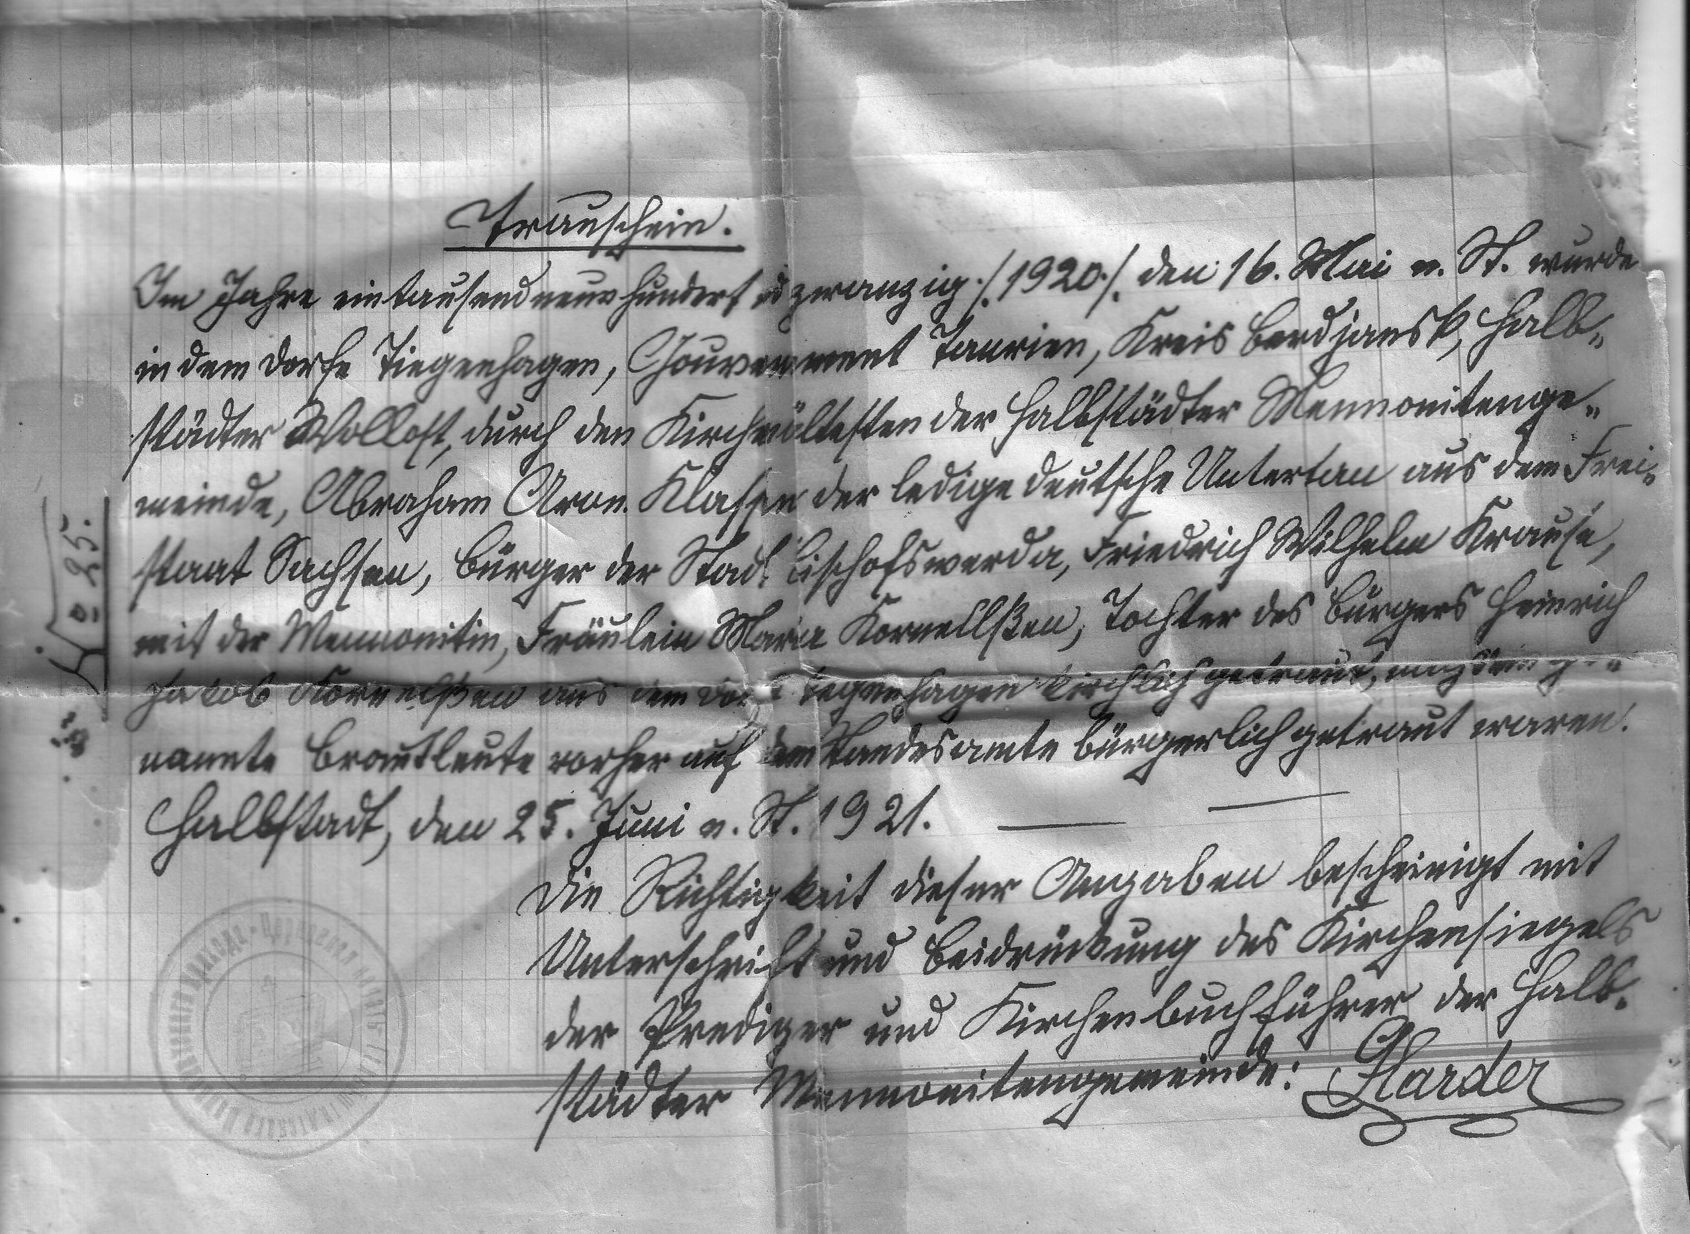 Trauschein.
Im Jahre eintausendneunhundert u zwanzig ./.1920./. den 16. Mai n. St. wurde
in dem Dorfe Tiegenhagen, Gouvernement Taurien, Kreis Berdjansk, Halb-
städter Wollost, durch den Kirchenältesten der Halbstädter Mennonitenge-
meinde, Abraham Aron. Klassen der ledige deutsche Untertan aus dem Frei-
staat Sachsen, Bürger der Stadt Bischofswerda, Friedrich Wilhelm Krause,
mit der Mennonitin, Fräulein Maria Kornellßen, Tochter des Bürgers Heinrich
Jakob Kornelßen aus dem Dorfe Tiegenhagen kirchlich getraut,
nannte Brautleute vorher auf dem Standesamte bürgerlich getraut waren.
Halbstadt, den 25. Juni n. St. 1921.
Die Richtigkeit dieser Angaben bescheinigt mit
Unterschrift und Beidrückung des Kirchensiegels
der Prediger und Kirchenbuchführer der Halb-
städter Mennonitengemeinde: Harder
No 25.